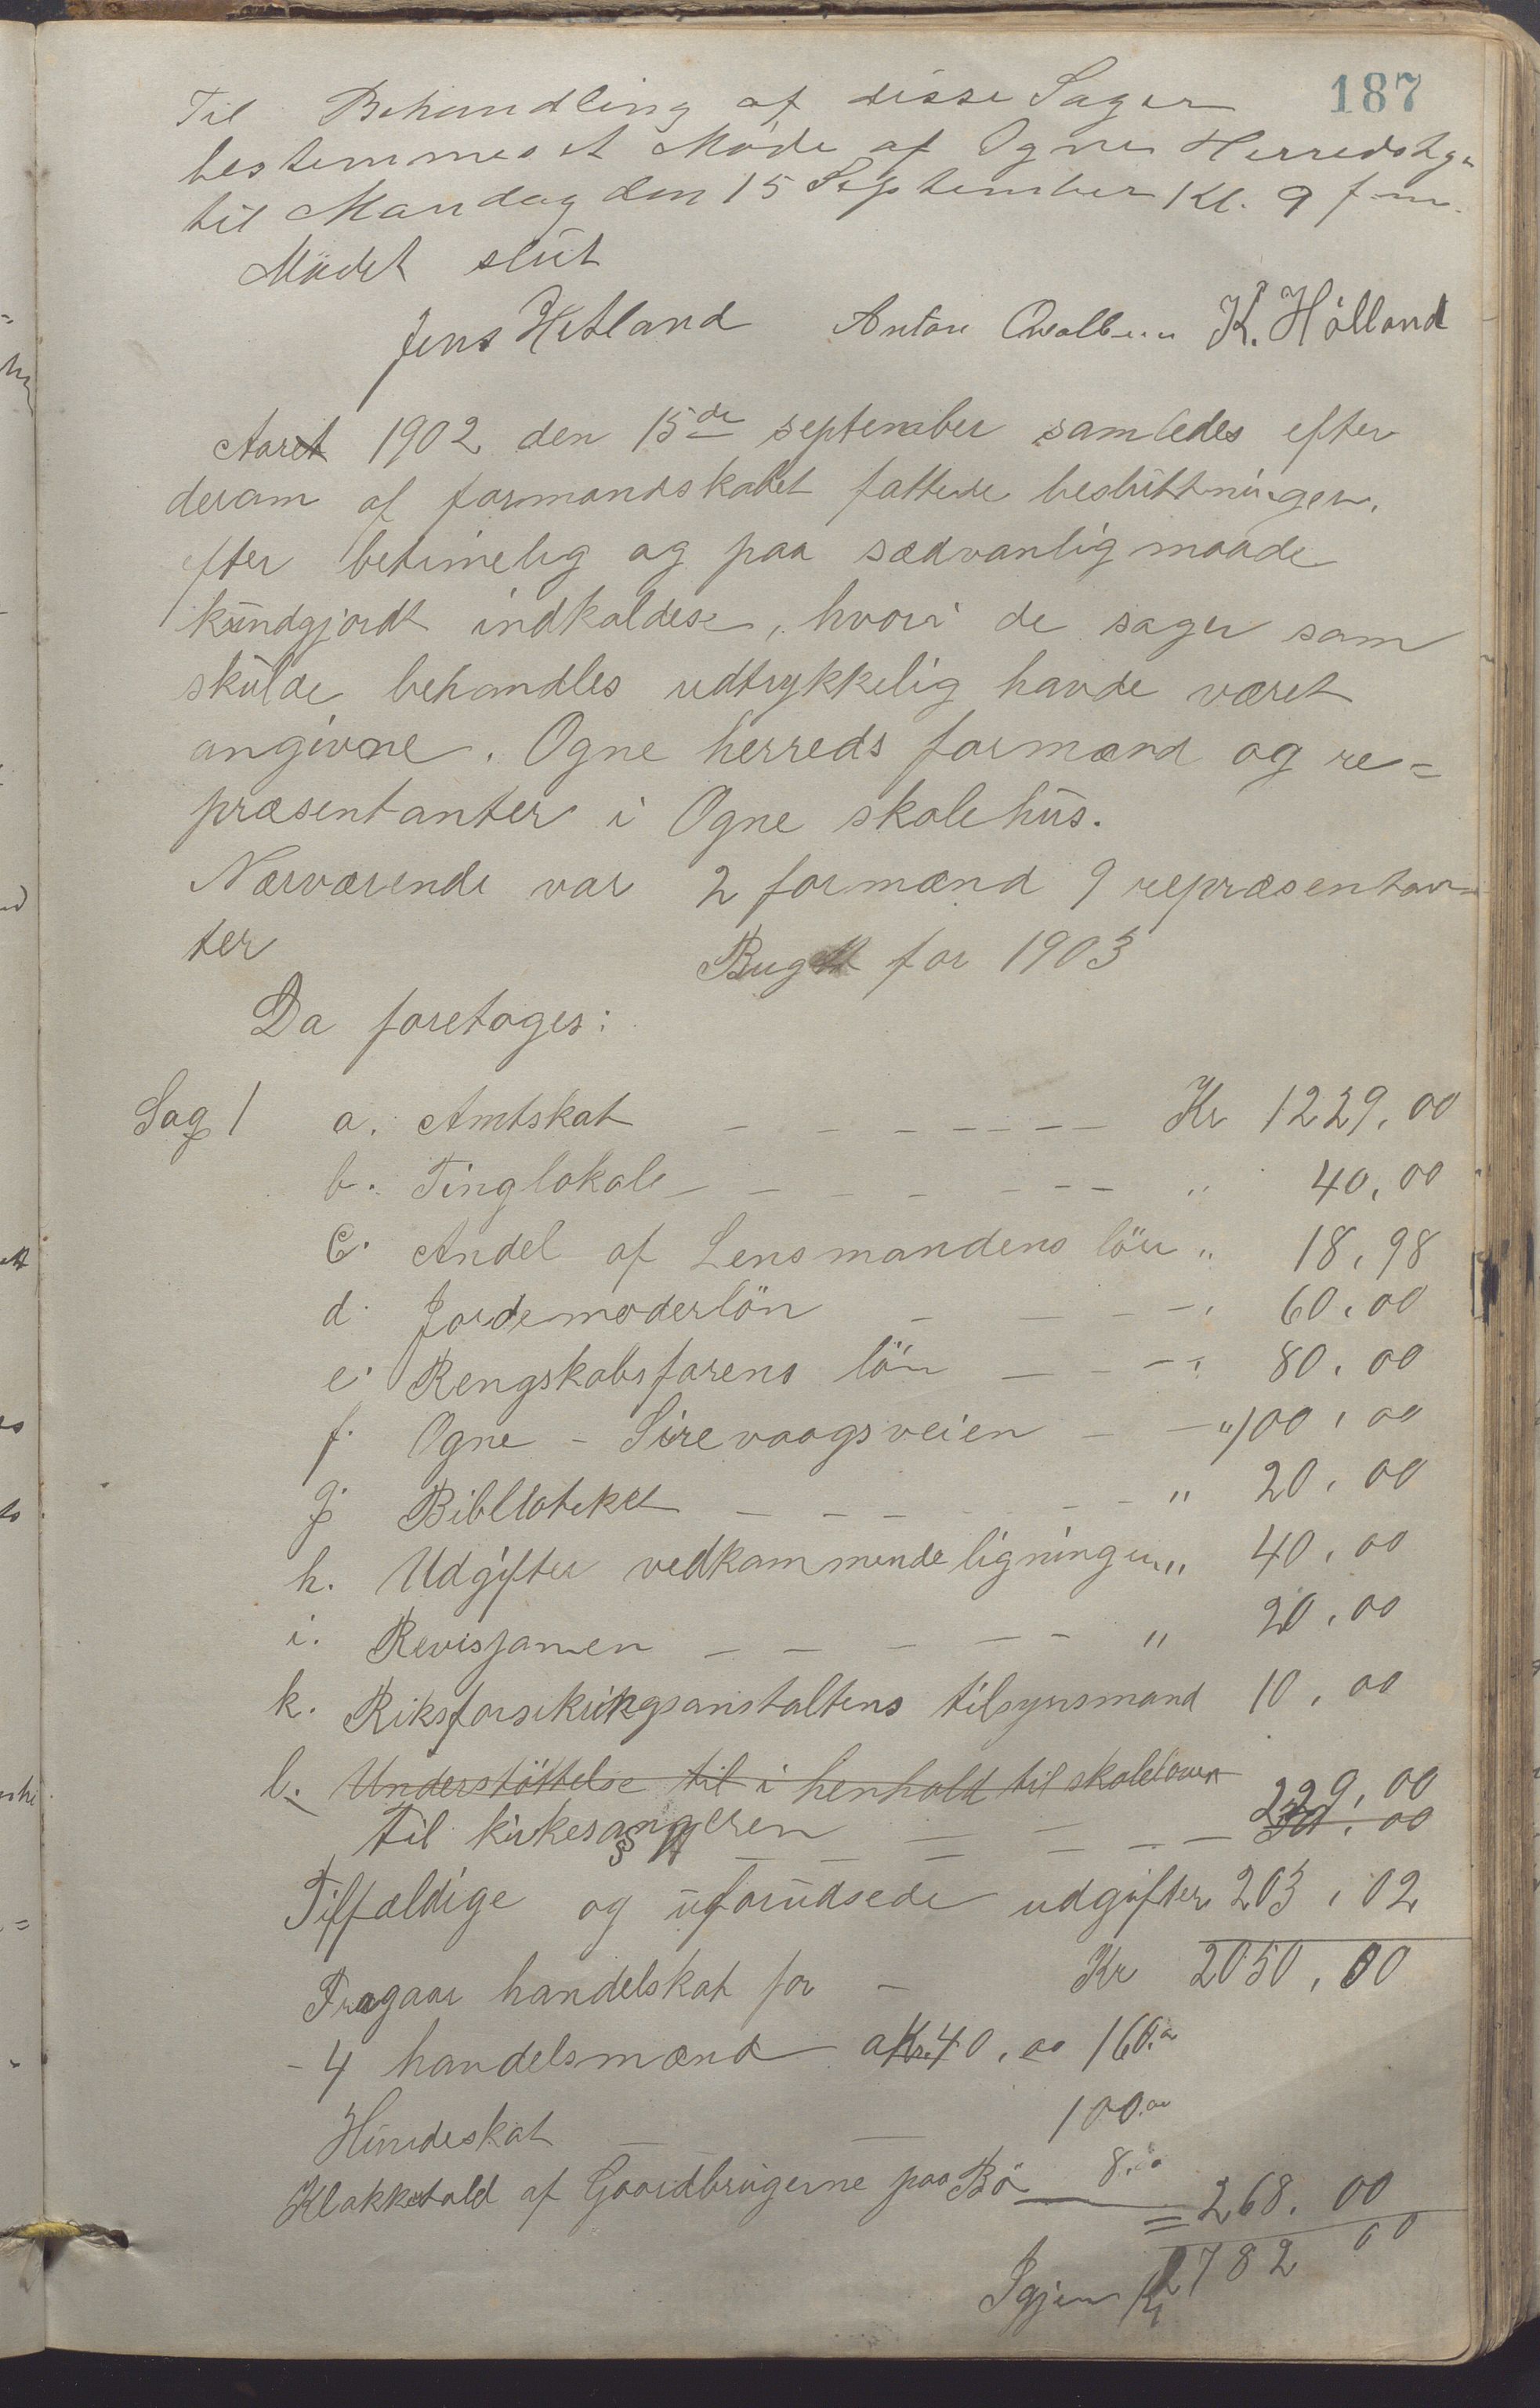 187
Til Behandling af disse Sager
bestemmes et Møde af Ogne Herredstyr
til Mandag den 15 September Kl. 9 fm.
Mödet slut
Jens Hetland Anton K. Hölland
Aaret 1902 den 15de september samledes efter
derom af formandskabet fattede besluttninger,
efter betimelig og paa sædvanlig maade
kundgjordt indkaldese, hvori de sager som
skulde behandles udtrykkelig havde været
angivne. Ogne herreds formænd og re=
præsentanter i Ogne skolehus.
Nærværende var 2 formænd 9 repræsentan-
ter
Bugett for 1903
Da foretoges:
Sag 1 a. Amtskat — — — — — — Kr 1229,00
b. Tinglokale — — — — — — „ 40,00
c. Andel af Lensmandens lön „ 18,98
d. Jordemoderlön — — — — „ 60,00
e. Rengskabsförerens lön — — — „ 80,00
f. Ogne - Sirevaagsveien — — „ 100,00
g. Biblioteket — — — — — „ 20,00
h. Udgifter vedkommende ligningen „ 40,00
i. Revisjonen — — — — — „ 20,00
k. Riksforsikringsanstaltens tilsynsmand 10,00
l. Understöttelse til i henhold til skoleloven
Til kirkesangeren — — — — — 229,00
Tilfældige og uforudsede udgifter 203,02
Kr 2050,00
Fragaar handelskat for —
- 4 handelsmænd a Kr. 40,00 160.00
Hundeskat — — 100.00
Klakketold af Gaardbrugerne paa Bö 8.00
= 268.00
Igjen Kr 1782 00